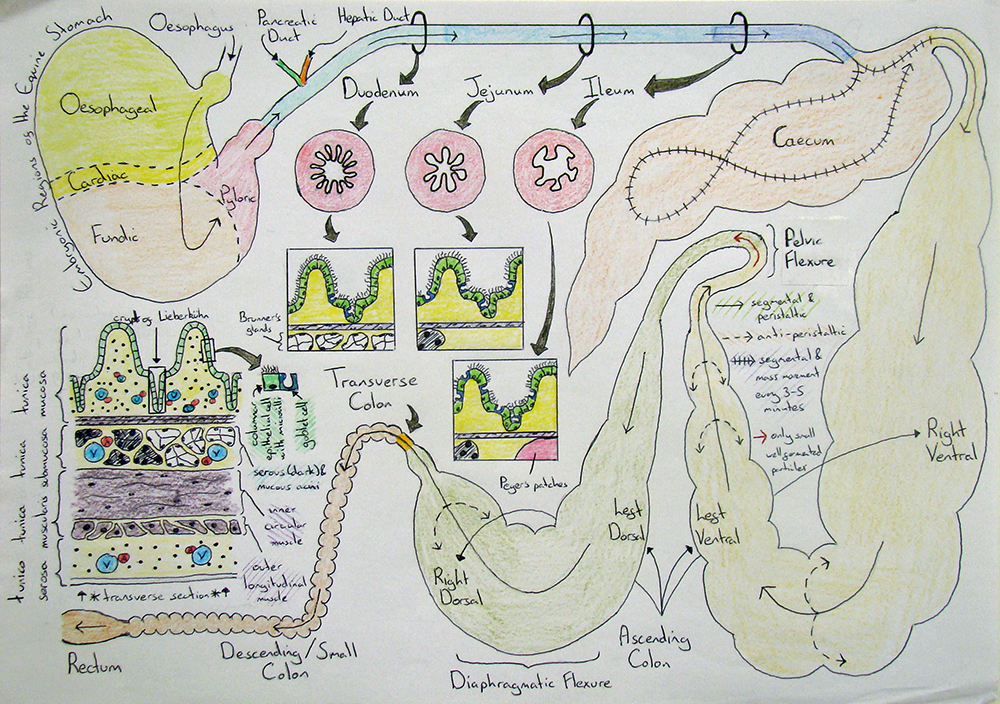 Embryonic Regions of the Equine Stomach
Oesophagus
Pancreatic
Duct
Hepatic Duct
Oesophageal
Cardiac
Pyloric
Fundic
Duodenum
Jejunum
Ileum
Caecum
Pelvic
Flexure
segmental &
peristaltic
anti-peristaltic
segmental &
mass movement
every 3-5
minutes
only small
well formated
Right
Ventral
crypt of Lieberkühn
Brunner's
glands
columnar
epithelial cell
with microvilli
goblet cell
serous (dark) &
mucous acini
inner
circular
muscle
outer
longitudinal
muscle
tunica
mucosa
tunica
submucosa
tunica
muscularis
tunica
serosa
V
A
V
V
V
↑ * transverse section * ↑
Transverse
Colon
Peyer's patches
Left
Dorsal
Left
Ventral
Right
Dorsal
Ascending
Colon
Diaphragmatic Flexure
Descending/Small
Colon
Rectum